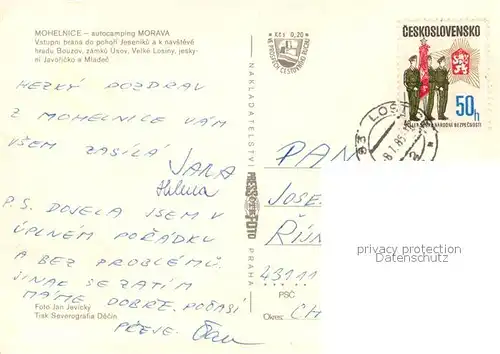 MOHELNICE – autocamping MORAVA
Vstupní brána do pohoří Jeseníků a k návštěvě
hradu Bouzov, zámků Úsov, Velké Losiny, jesky-
ní Javoříčko a Mladeč
HEZKÝ POZDRAV
Z MOHELNICE VÁM
VŠEM ZASÍLÁ
JANA
Helena
P.S. DOJELA JSEM V
ÚPLNÉM POŘÁDKU
A BEZ PROBLÉMŮ.
JINAK SE ZATÍM
MÁME DOBŘE. POČASÍ
PŘEJE.
Foto Jan Jevický
Tisk Severografia Děčín
Kčs 0,20
VE SLUŽBÁCH CESTOVNÍHO RUCHU
NAKLADATELSTVÍ
PRESSFOTO
PRAHA
ČESKOSLOVENSKO
50h
NÁRODNÍ BEZPEČNOSTI
LOŠT
PAN
JOSE
ŘÍJN
43111
PSČ
Okres: CH
privacy protection
AnsichtskartenKönig